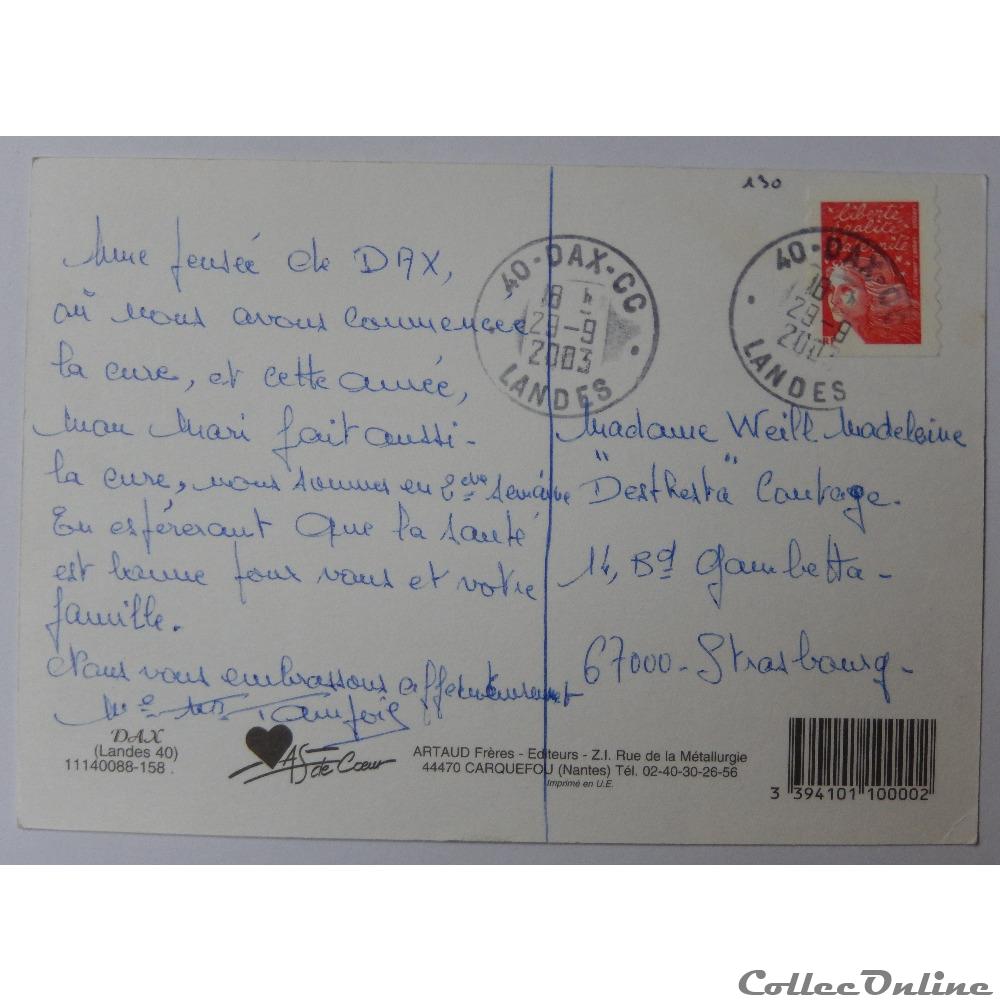 Une pensée de DAX,
où nous avons commencee
la cure, et cette année,
Mon Mari fait aussi-
la cure, nous sommes en 2ème semaine
En espérerant que la santé
est bonne pour vous et votre
famille.
Nous vous embrassons affectueusement
130
liberté
égalité
fraternité
40-DAX-CC
18 H
29-9
2003
LANDES
40-DAX-CC
18
29-9
2003
LANDES
Madame Weill Madeleine
14, Bd Gambetta-
67000-Strasbourg-
DAX
(Landes 40)
11140088-158.
As de Cœur
ARTAUD Frères - Editeurs - Z.I. Rue de la Métallurgie
44470 CARQUEFOU (Nantes) Tél. 02-40-30-26-56
Imprimé en U.E.
3 394101 100002
CollecOnline